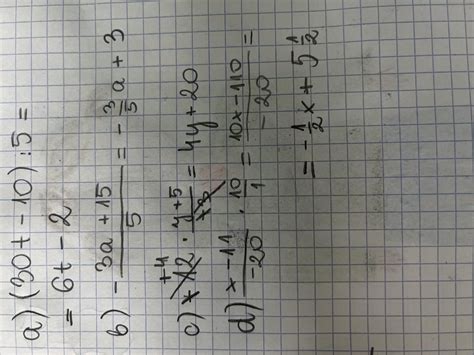 a) (30t - 10) : 5 =
= 6t - 2
b) - \frac{3a + 15}{5} = - \frac{3}{5}a + 3
c) +12 · \frac{y+5}{+3} = 4y + 20
+4
d) \frac{x - 11}{-20} · \frac{10}{1} = \frac{10x - 110}{-20} =
= -\frac{1}{2}x + 5\frac{1}{2}